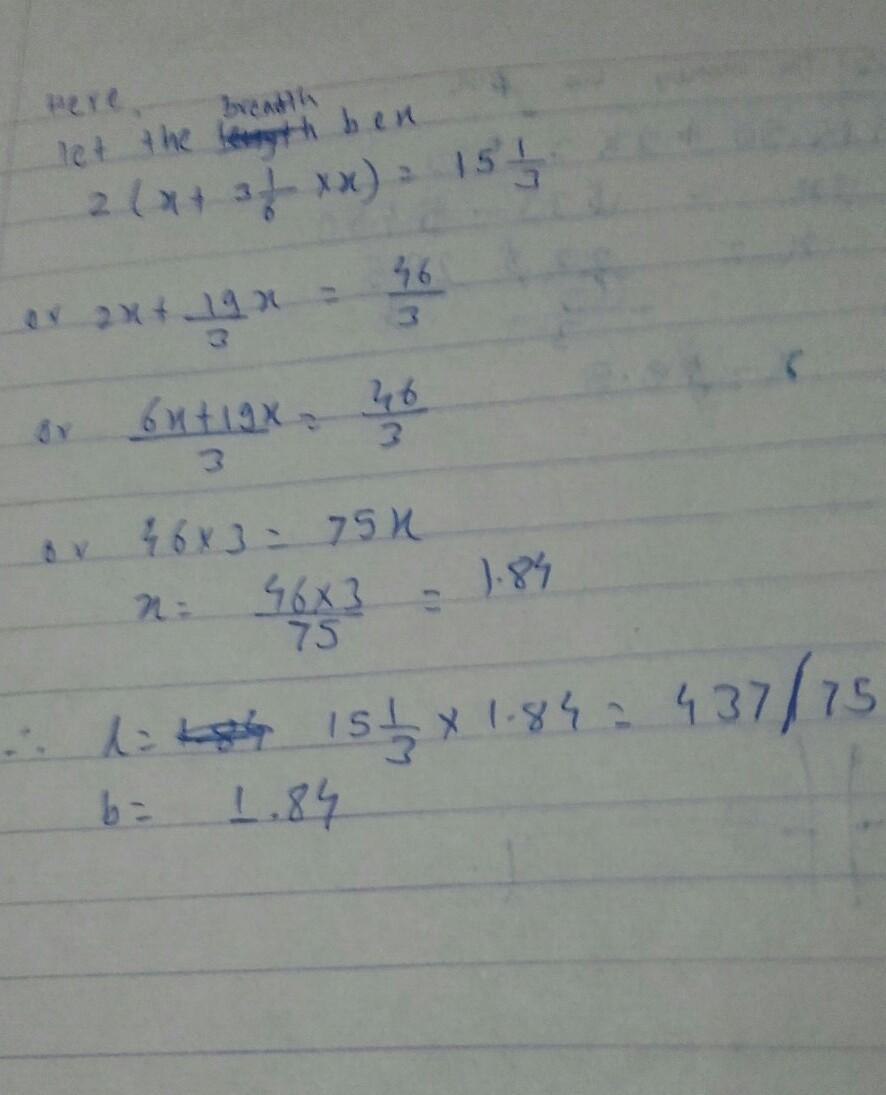 Here,
let the breadth be x
2 ( x + 3 1/6 × x ) = 15 1/3
or 2x + 19/3 x = 46/3
or (6x + 19x)/3 = 46/3
or 46 × 3 = 75x
x = (46 × 3)/75 = 1.84
∴ l = 15 1/3 × 1.84 = 437/75
b = 1.84